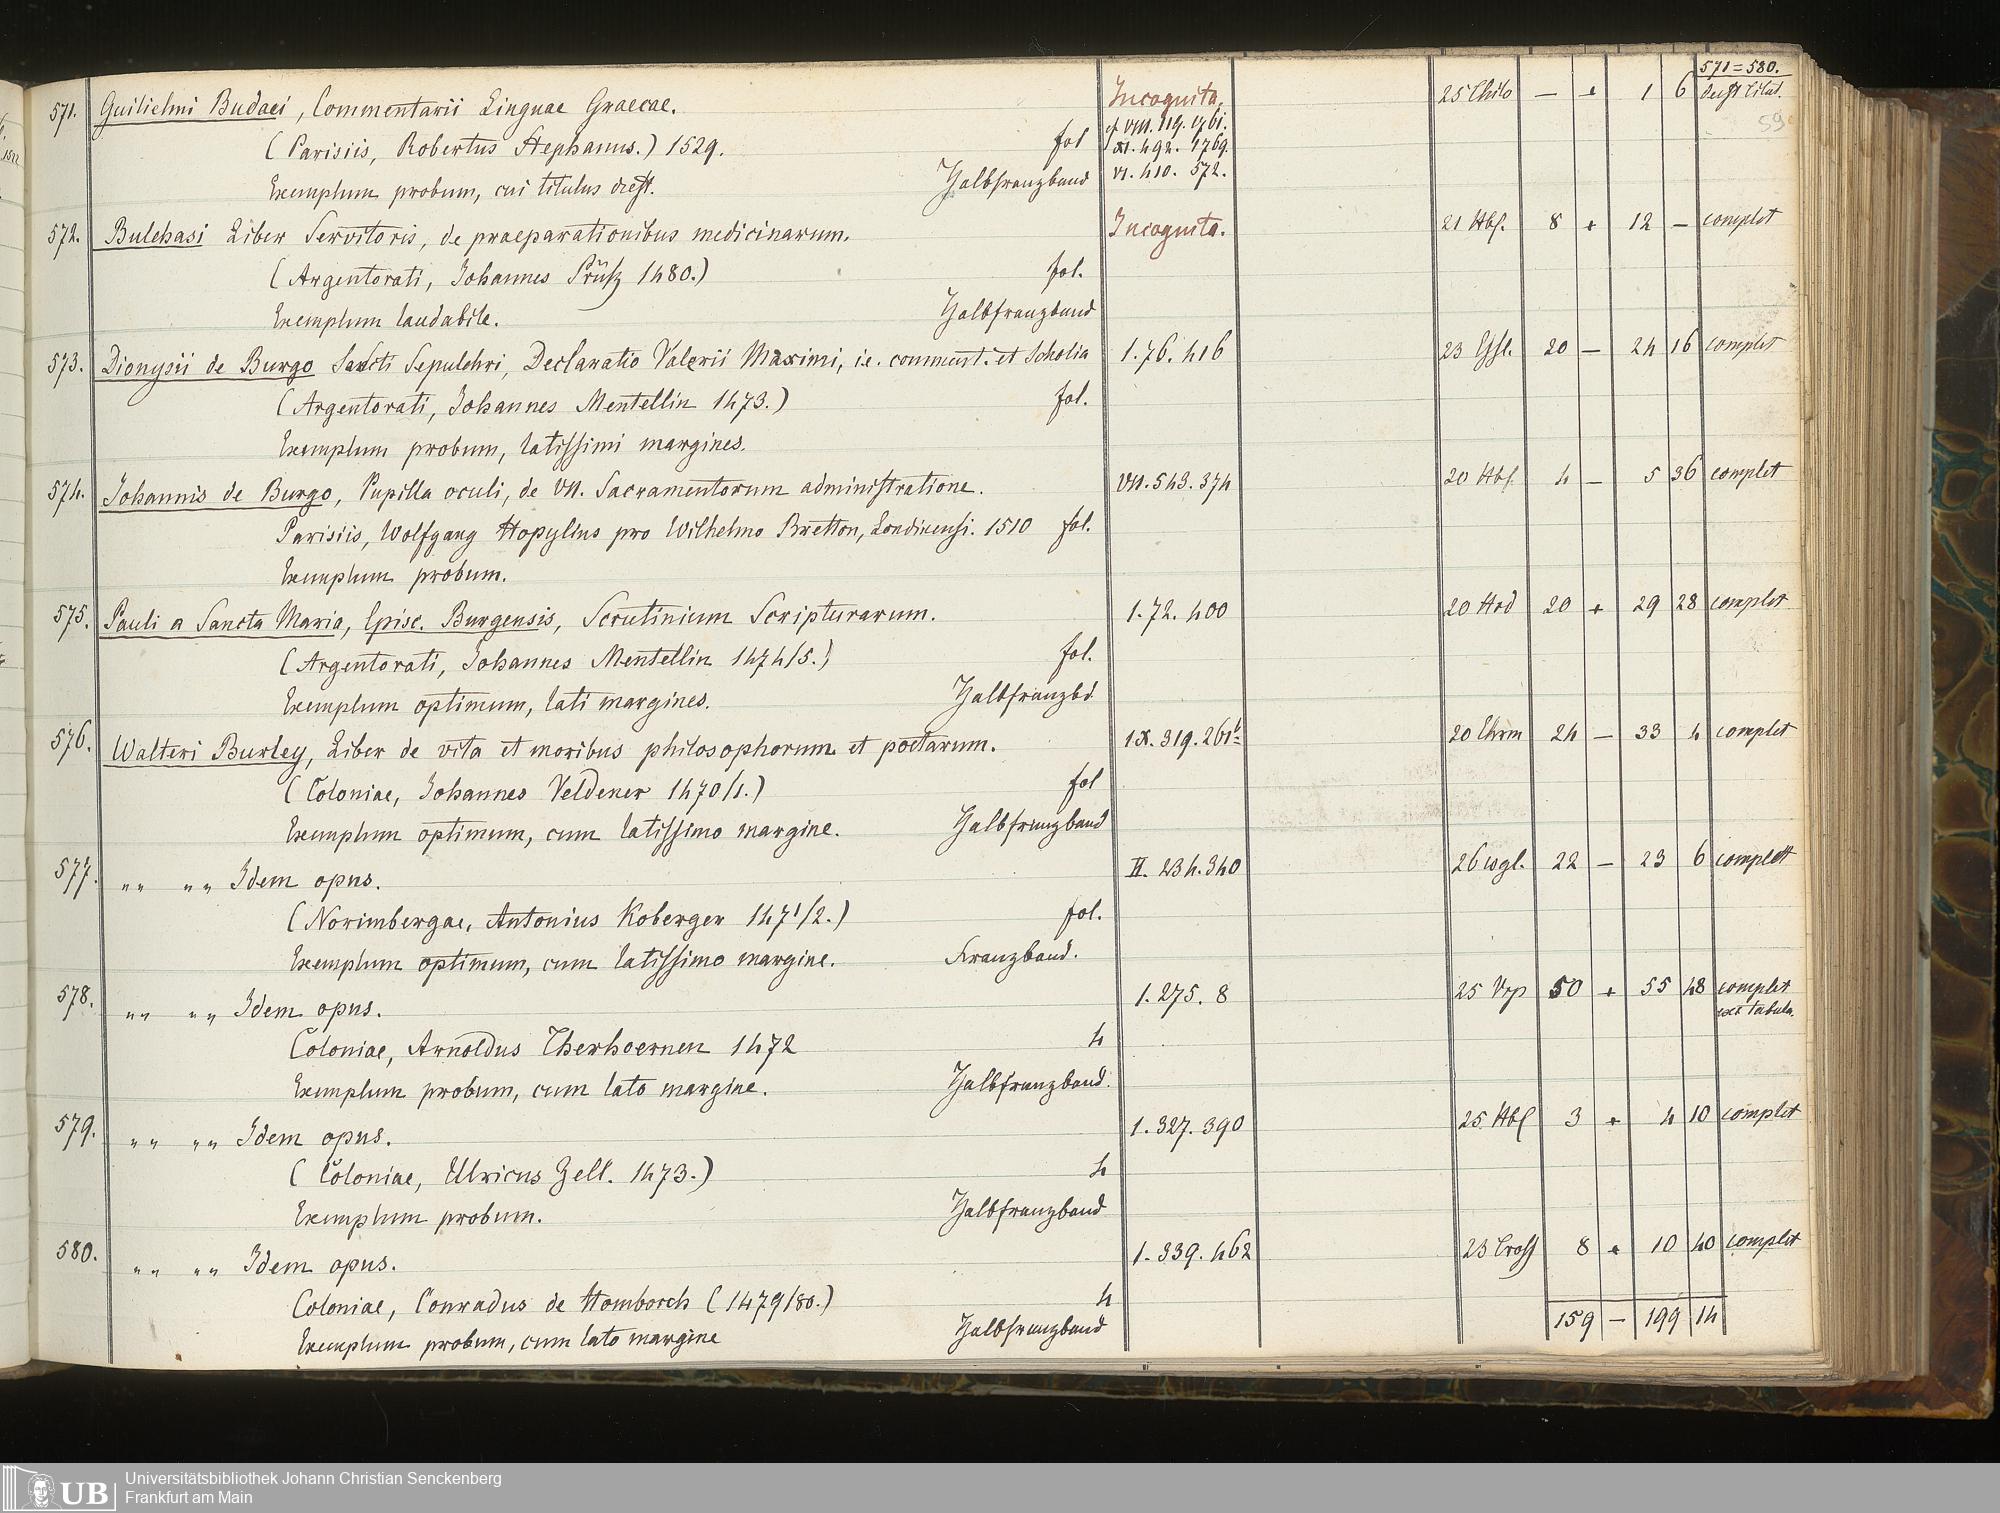 571 = 580.
571. Guilielmi Budaei, Commentarii Linguae Graecae. Incognita, 25 Chilo — + 1 6 deest titul.
(Parisiis, Robertus Stephanus.) 1529. fol cf VIII. 119. 1761.
XI. 492. 1769.
Exemplum probum, cui titulus deest. Halbfranzband VI. 410. 572.
59
572. Bulchasi Liber Servitoris, de praeparationibus medicinarum. Incognita. 21 Hbf. 8 + 12 — complet
(Argentorati, Johannes Prüß 1480.) fol.
Exemplum laudabile. Halbfranzband
573. Dionysii de Burgo Sancti Sepulchri, Declaratio Valerii Maximi, i.e. comment. et Scholia 1. 76. 416 23 20 — 24 16 complet
(Argentorati, Johannes Mentellin 1473.) fol.
Exemplum probum, latissimi margines.
574. Johannis de Burgo, Pupilla oculi, de VII. Sacramentorum administratione. VII. 543. 374 20 Hbf. 4 — 5 36 complet
Parisiis, Wolfgang Hopylius pro Wilhelmo Bretton, Londinensi. 1510 fol.
Exemplum probum.
575. Pauli a Sancta Maria, Episc. Burgensis, Scrutinium Scripturarum. 1. 72. 400 20 Hrd 20 + 29 28 complet
(Argentorati, Johannes Mentellin 1474/5.) fol.
Exemplum optimum, lati margines. Halbfranzbd
576. Walteri Burley, Liber de vita et moribus philosophorum et poetarum. IX. 319. 261b 20 Ehrm 24 — 33 4 complet
(Coloniae, Johannes Veldener 1470/1.) fol
Exemplum optimum, cum latissimo margine. Halbfranzband
577. " " " " Idem opus. II. 234. 340 26 wgl. 22 — 23 6 complett
(Norimbergae, Antonius Koberger 1471/2.) fol.
Exemplum optimum, cum latissimo margine. Franzband.
578. " " " " Idem opus. 1. 275. 8 25 Vrp 50 + 55 48 complet
exc tabula.
Coloniae, Arnoldus Therhoernen 1472 4
Exemplum probum, cum lato margine. Halbfranzband.
579. " " " " Idem opus. 1. 327. 390 25. Hbf 3 + 4 10 complet
(Coloniae, Ulricus Zell. 1473.) 4
Exemplum probum. Halbfranzband
580. " " " " Idem opus. 1. 339. 462 23 Cross 8 + 10 40 complet
Coloniae, Conradus de Homborch (1479/80.) 4
159 — 199 14
Exemplum probum, cum lato margine Halbfranzband
UB Universitätsbibliothek Johann Christian Senckenberg
Frankfurt am Main